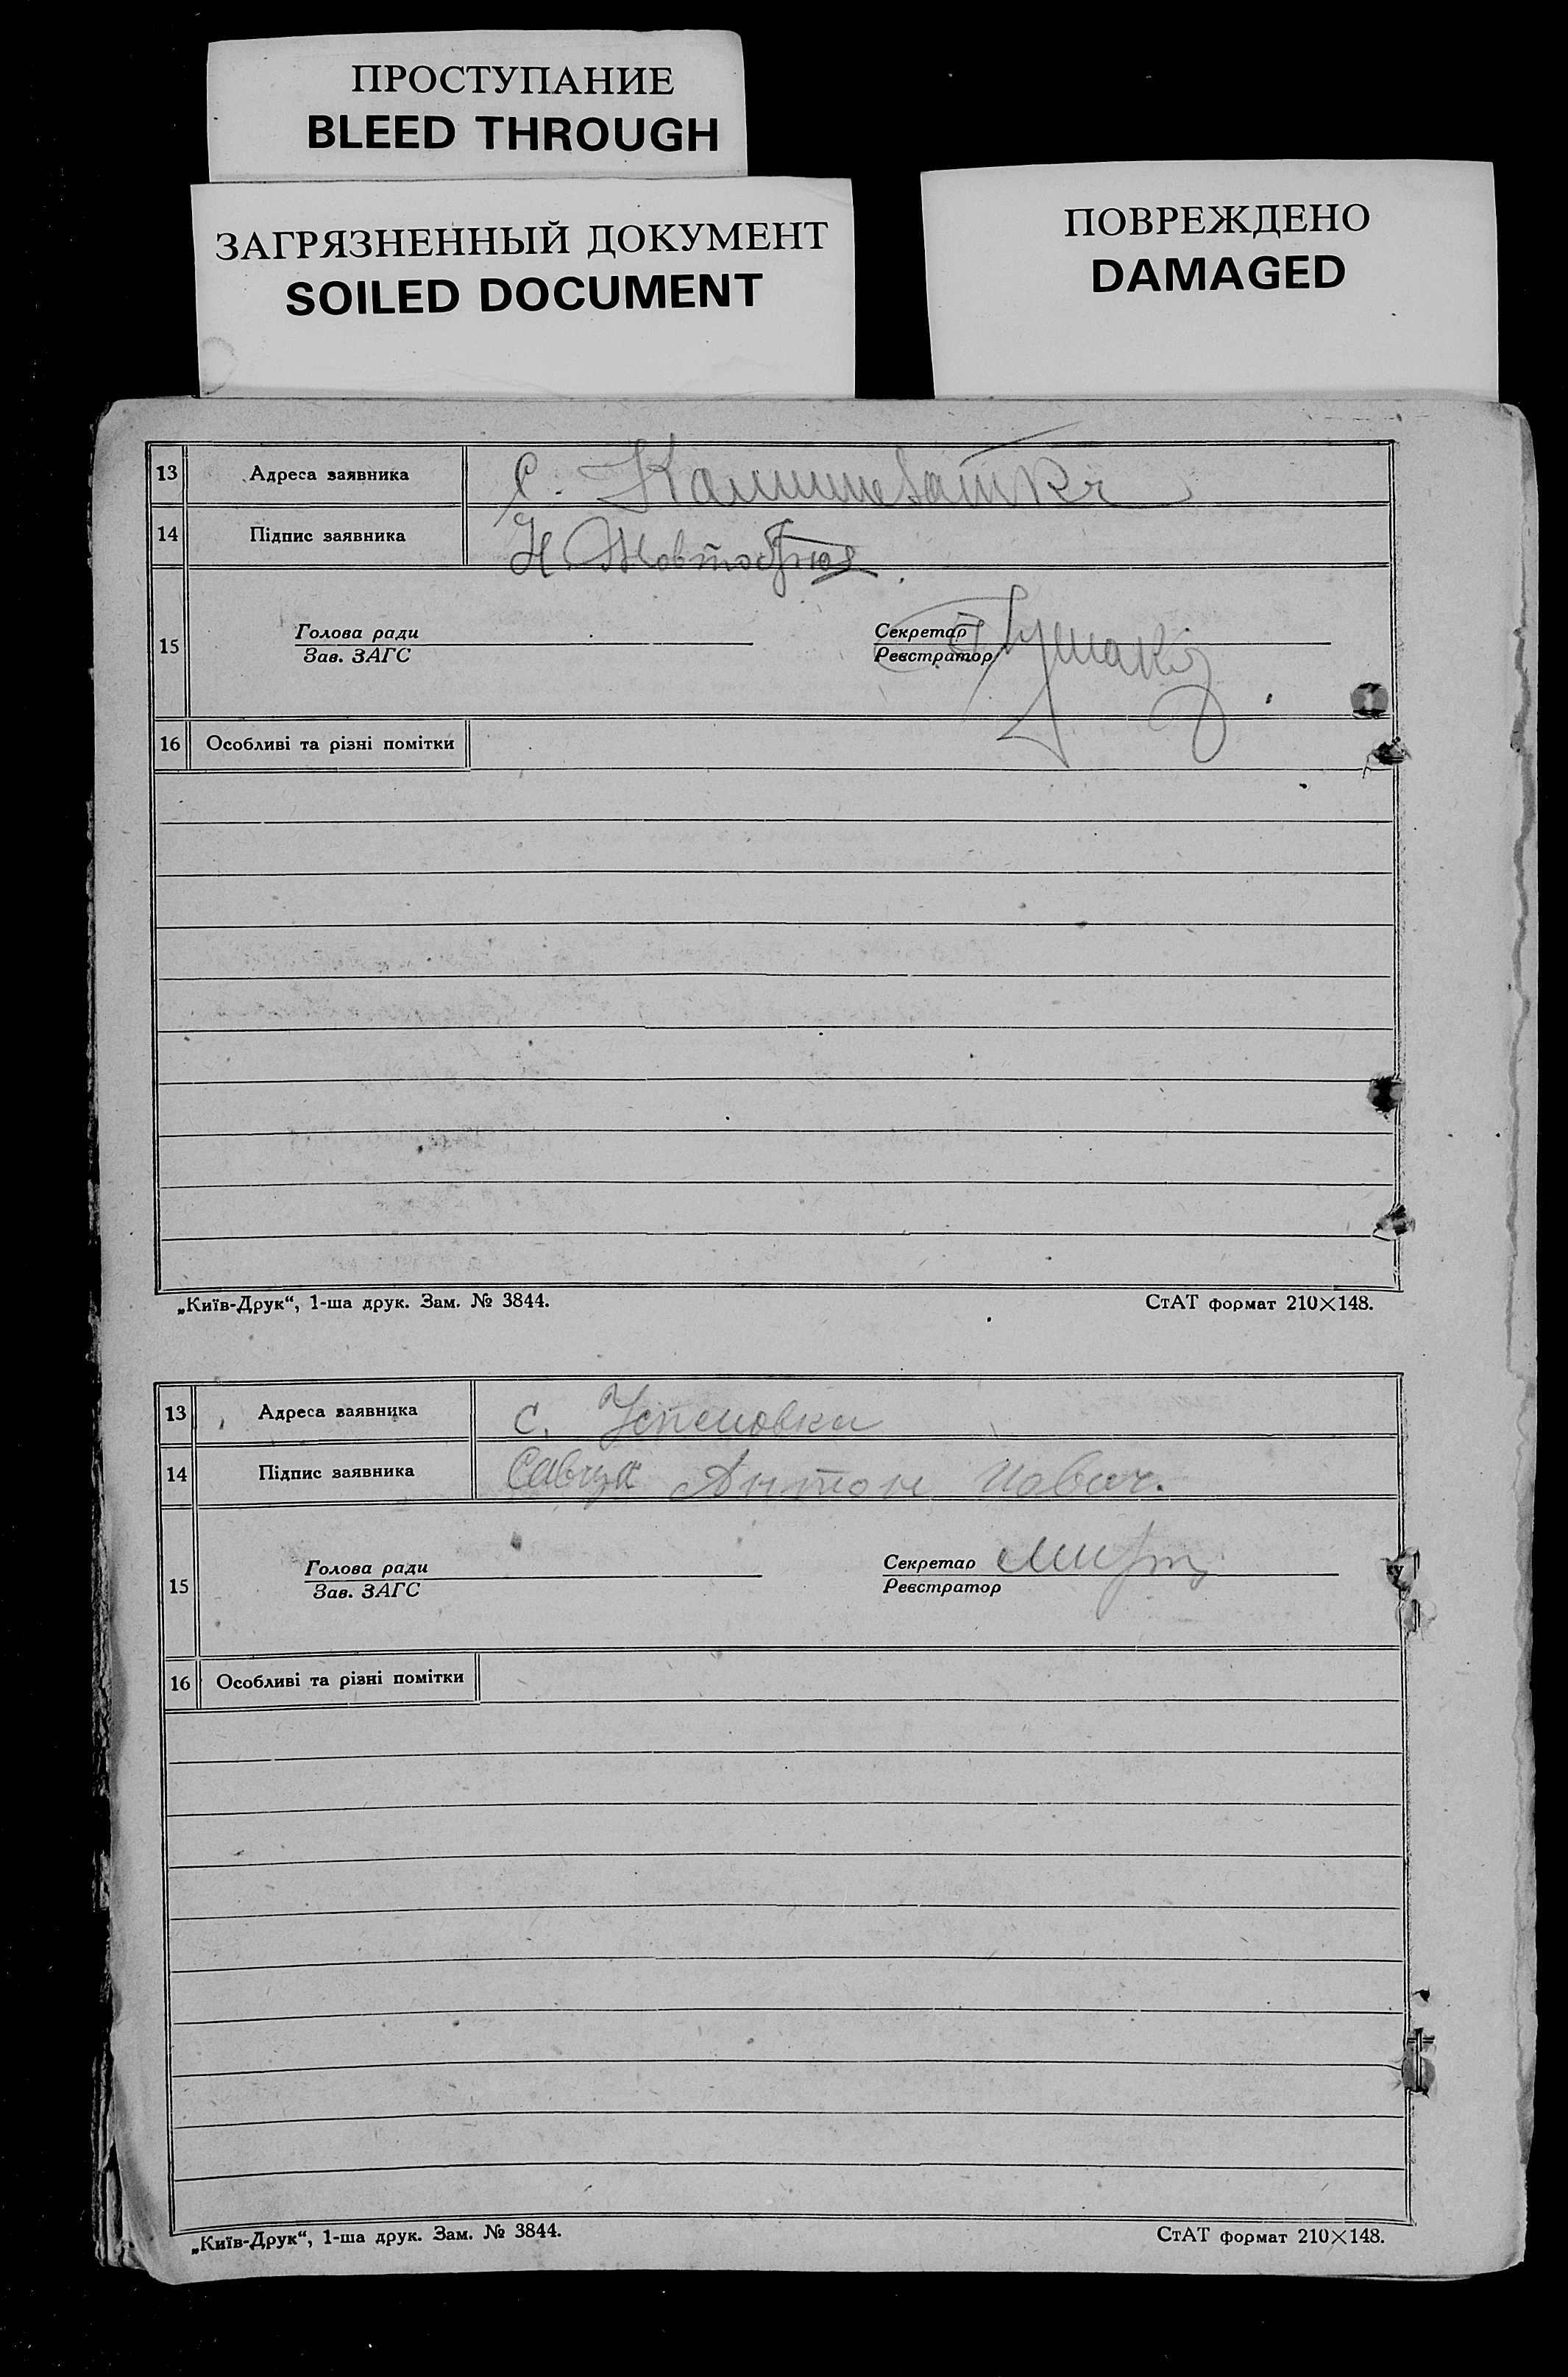 ПРОСТУПАНИЕ
BLEED THROUGH
ЗАГРЯЗНЕННЫЙ ДОКУМЕНТ
SOILED DOCUMENT
ПОВРЕЖДЕНО
DAMAGED
13 Адреса заявника С.
14 Підпис заявника Н. Жовтобрюх
15 Голова ради Секретар
Зав. ЗАГС Реєстратор
16 Особливі та різні помітки
„Київ-Друк“, 1-ша друк. Зам. № 3844. СтАТ формат 210×148.
13 Адреса заявника с. Успеновка
14 Підпис заявника Савчук Антон
15 Голова ради Секретар
Зав. ЗАГС Реєстратор
16 Особливі та різні помітки
„Київ-Друк“, 1-ша друк. Зам. № 3844. СтАТ формат 210×148.